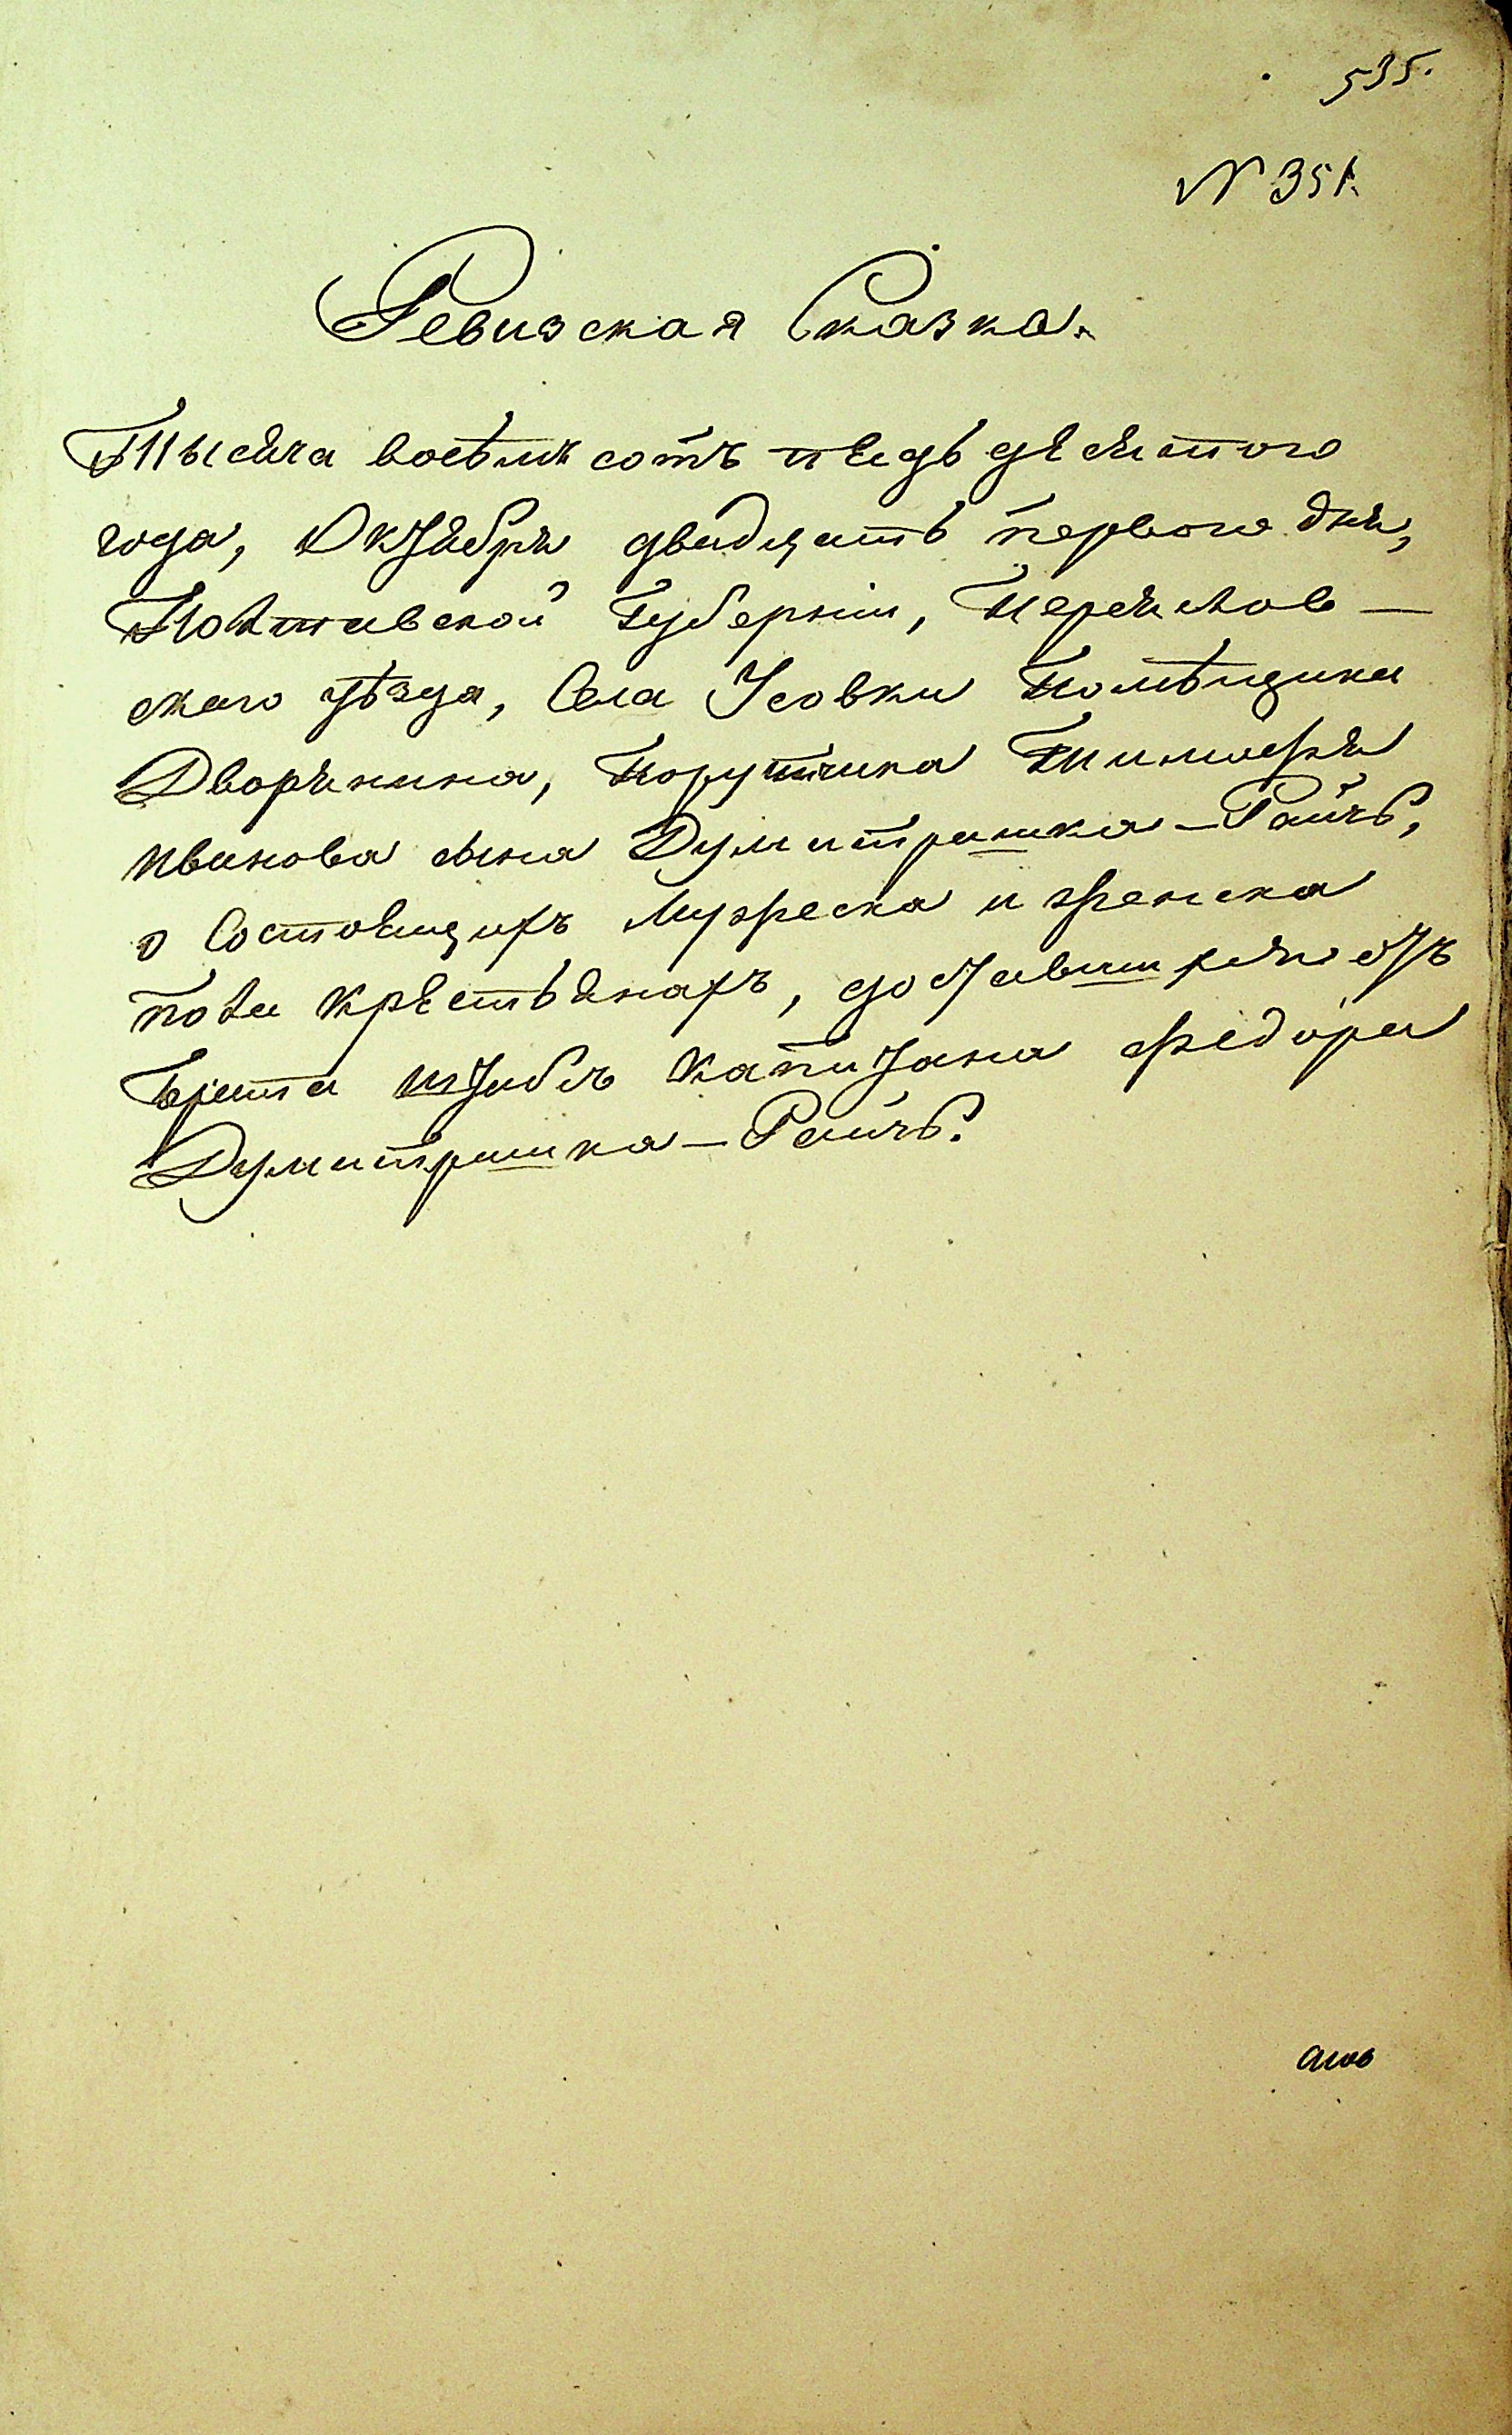 535.
№ 351.
Ревизская Сказка.
Тысяча восемь сотъ пядьдесятого
года, Октября двадцать первого дня,
Полтавской Губерніи, Переяслов-
скаго уѣзда, Села Усовки Помѣщика
Дворянина, Порутчика Тимофея
Иванова сына Думитрашка-Раичь,
о Состоящихъ Мужеска и женска
пола крестьянахъ, доставшихся отъ
Брата Штабсъ Капитана Федора
Думитрашка-Раичь.